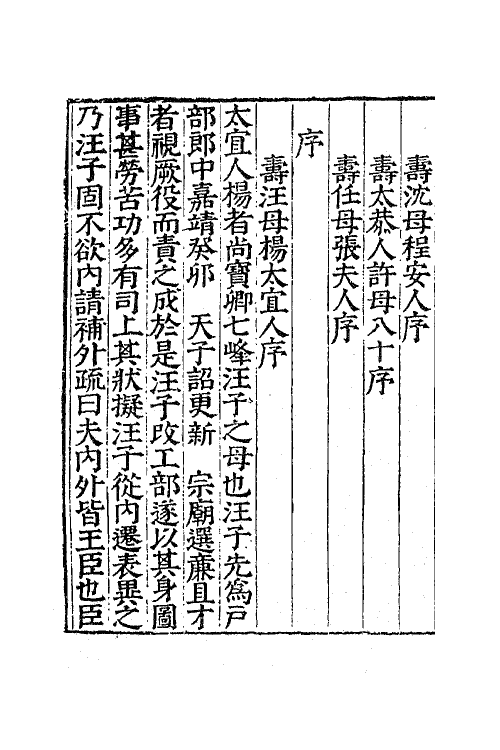 壽沈母程安人序
壽太恭人許母八十序
壽任母張夫人序
序
壽汪母楊太宜人序
太宜人楊者尚寶卿七峰汪子之母也汪子先爲戸
部郎中嘉靖癸卯　天子詔更新　宗廟選廉且才
者視厥役而責之成於是汪子改工部遂以其身圖
事甚勞苦功多有司上其狀擬汪子從內遷表異之
乃汪子固不欲內請補外疏曰夫內外皆王臣也臣